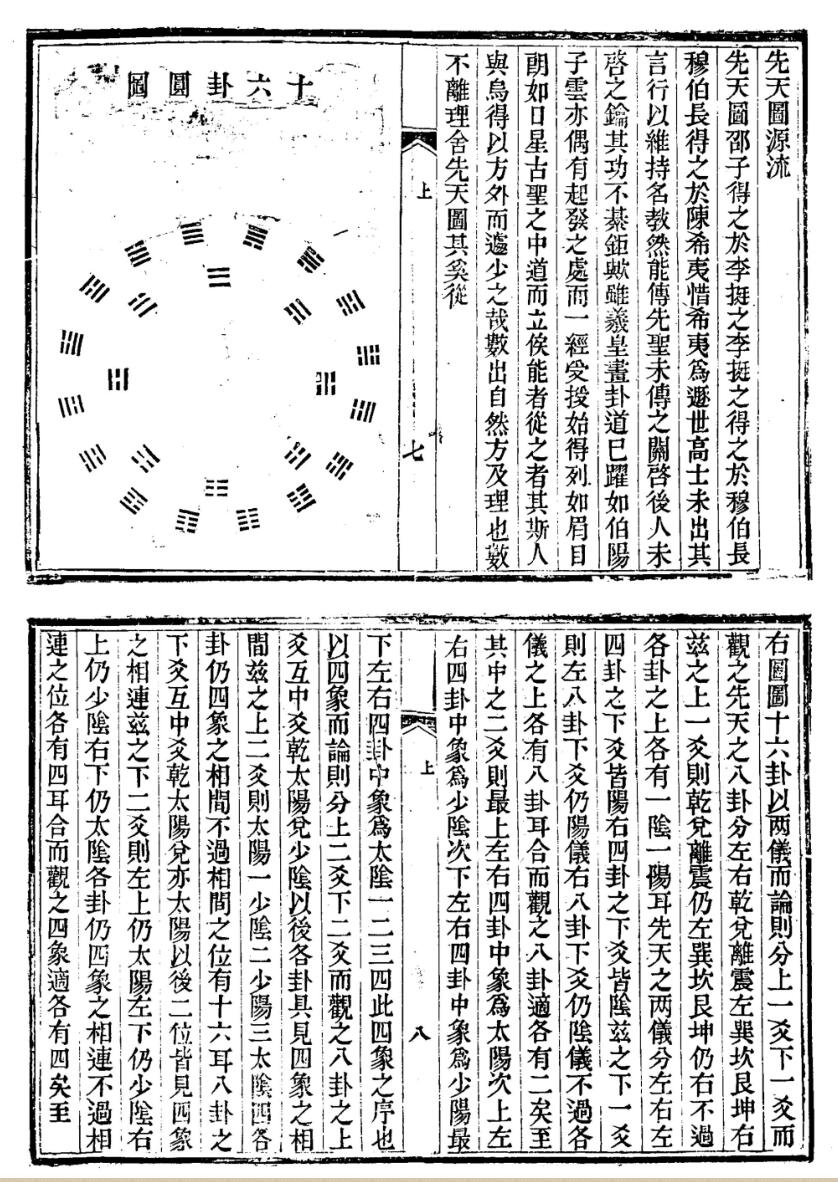 先天圖源流
先天圖邵子得之於李挺之李挺之得之於穆伯長
穆伯長得之於陳希夷惜希夷爲遯世高士未出其
言行以維持名教然能傳先聖未傳之關啓後人未
啓之鑰其功不綦鉅歟雖羲皇畫卦道已躍如伯陽
子雲亦偶有起發之處而一經受授始得列如眉目
朗如日星古聖之中道而立俟能者從之者其斯人
與烏得以方外而遽少之哉數出自然方及理也數
不離理舍先天圖其奚從
上
七
十六卦圓圖
右圖圖十六卦以两儀而論則分上一爻下一爻而
觀之先天之八卦分左右乾兌離震左巽坎艮坤右
茲之上一爻則乾兌離震仍左巽坎艮坤仍右不過
各卦之上各有一陰一陽耳先天之两儀分左右左
四卦之下爻皆陽右四卦之下爻皆陰茲之下一爻
則左八卦下爻仍陽儀右八卦下爻仍陰儀不過各
儀之上各有八卦耳合而觀之八卦適各有二矣至
其中之二爻則最上左右四卦中象爲太陽次上左
右四卦中象爲少陰次下左右四卦中象爲少陽最
上
八
下左右四卦中象爲太陰一二三四此四象之序也
以四象而論則分上二爻下二爻而觀之八卦之上
爻互中爻乾太陽兌少陰以後各卦具見四象之相
間茲之上二爻則太陽一少陰二少陽三太陰四各
卦仍四象之相間不過相間之位有十六耳八卦之
下爻互中爻乾太陽兌亦太陽以後二位皆見四象
之相連茲之下二爻則左上仍太陽左下仍少陰右
上仍少陰右下仍太陰各卦仍四象之相連不過相
連之位各有四耳合而觀之四象適各有四矣至